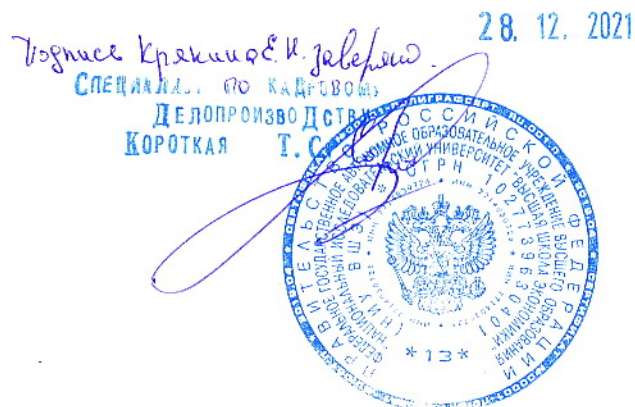 28. 12. 2021
Подпись Крякина Е. И. заверяю.
СПЕЦИАЛИСТ ПО КАДРОВОМУ
ДЕЛОПРОИЗВОДСТВУ
КОРОТКАЯ Т. С.
ПРАВИТЕЛЬСТВО РОССИЙСКОЙ ФЕДЕРАЦИИ
ФЕДЕРАЛЬНОЕ ГОСУДАРСТВЕННОЕ АВТОНОМНОЕ ОБРАЗОВАТЕЛЬНОЕ УЧРЕЖДЕНИЕ ВЫСШЕГО ОБРАЗОВАНИЯ
"НАЦИОНАЛЬНЫЙ ИССЛЕДОВАТЕЛЬСКИЙ УНИВЕРСИТЕТ "ВЫСШАЯ ШКОЛА ЭКОНОМИКИ"
(НИУ ВШЭ) * ОГРН 1027739630401
*13*